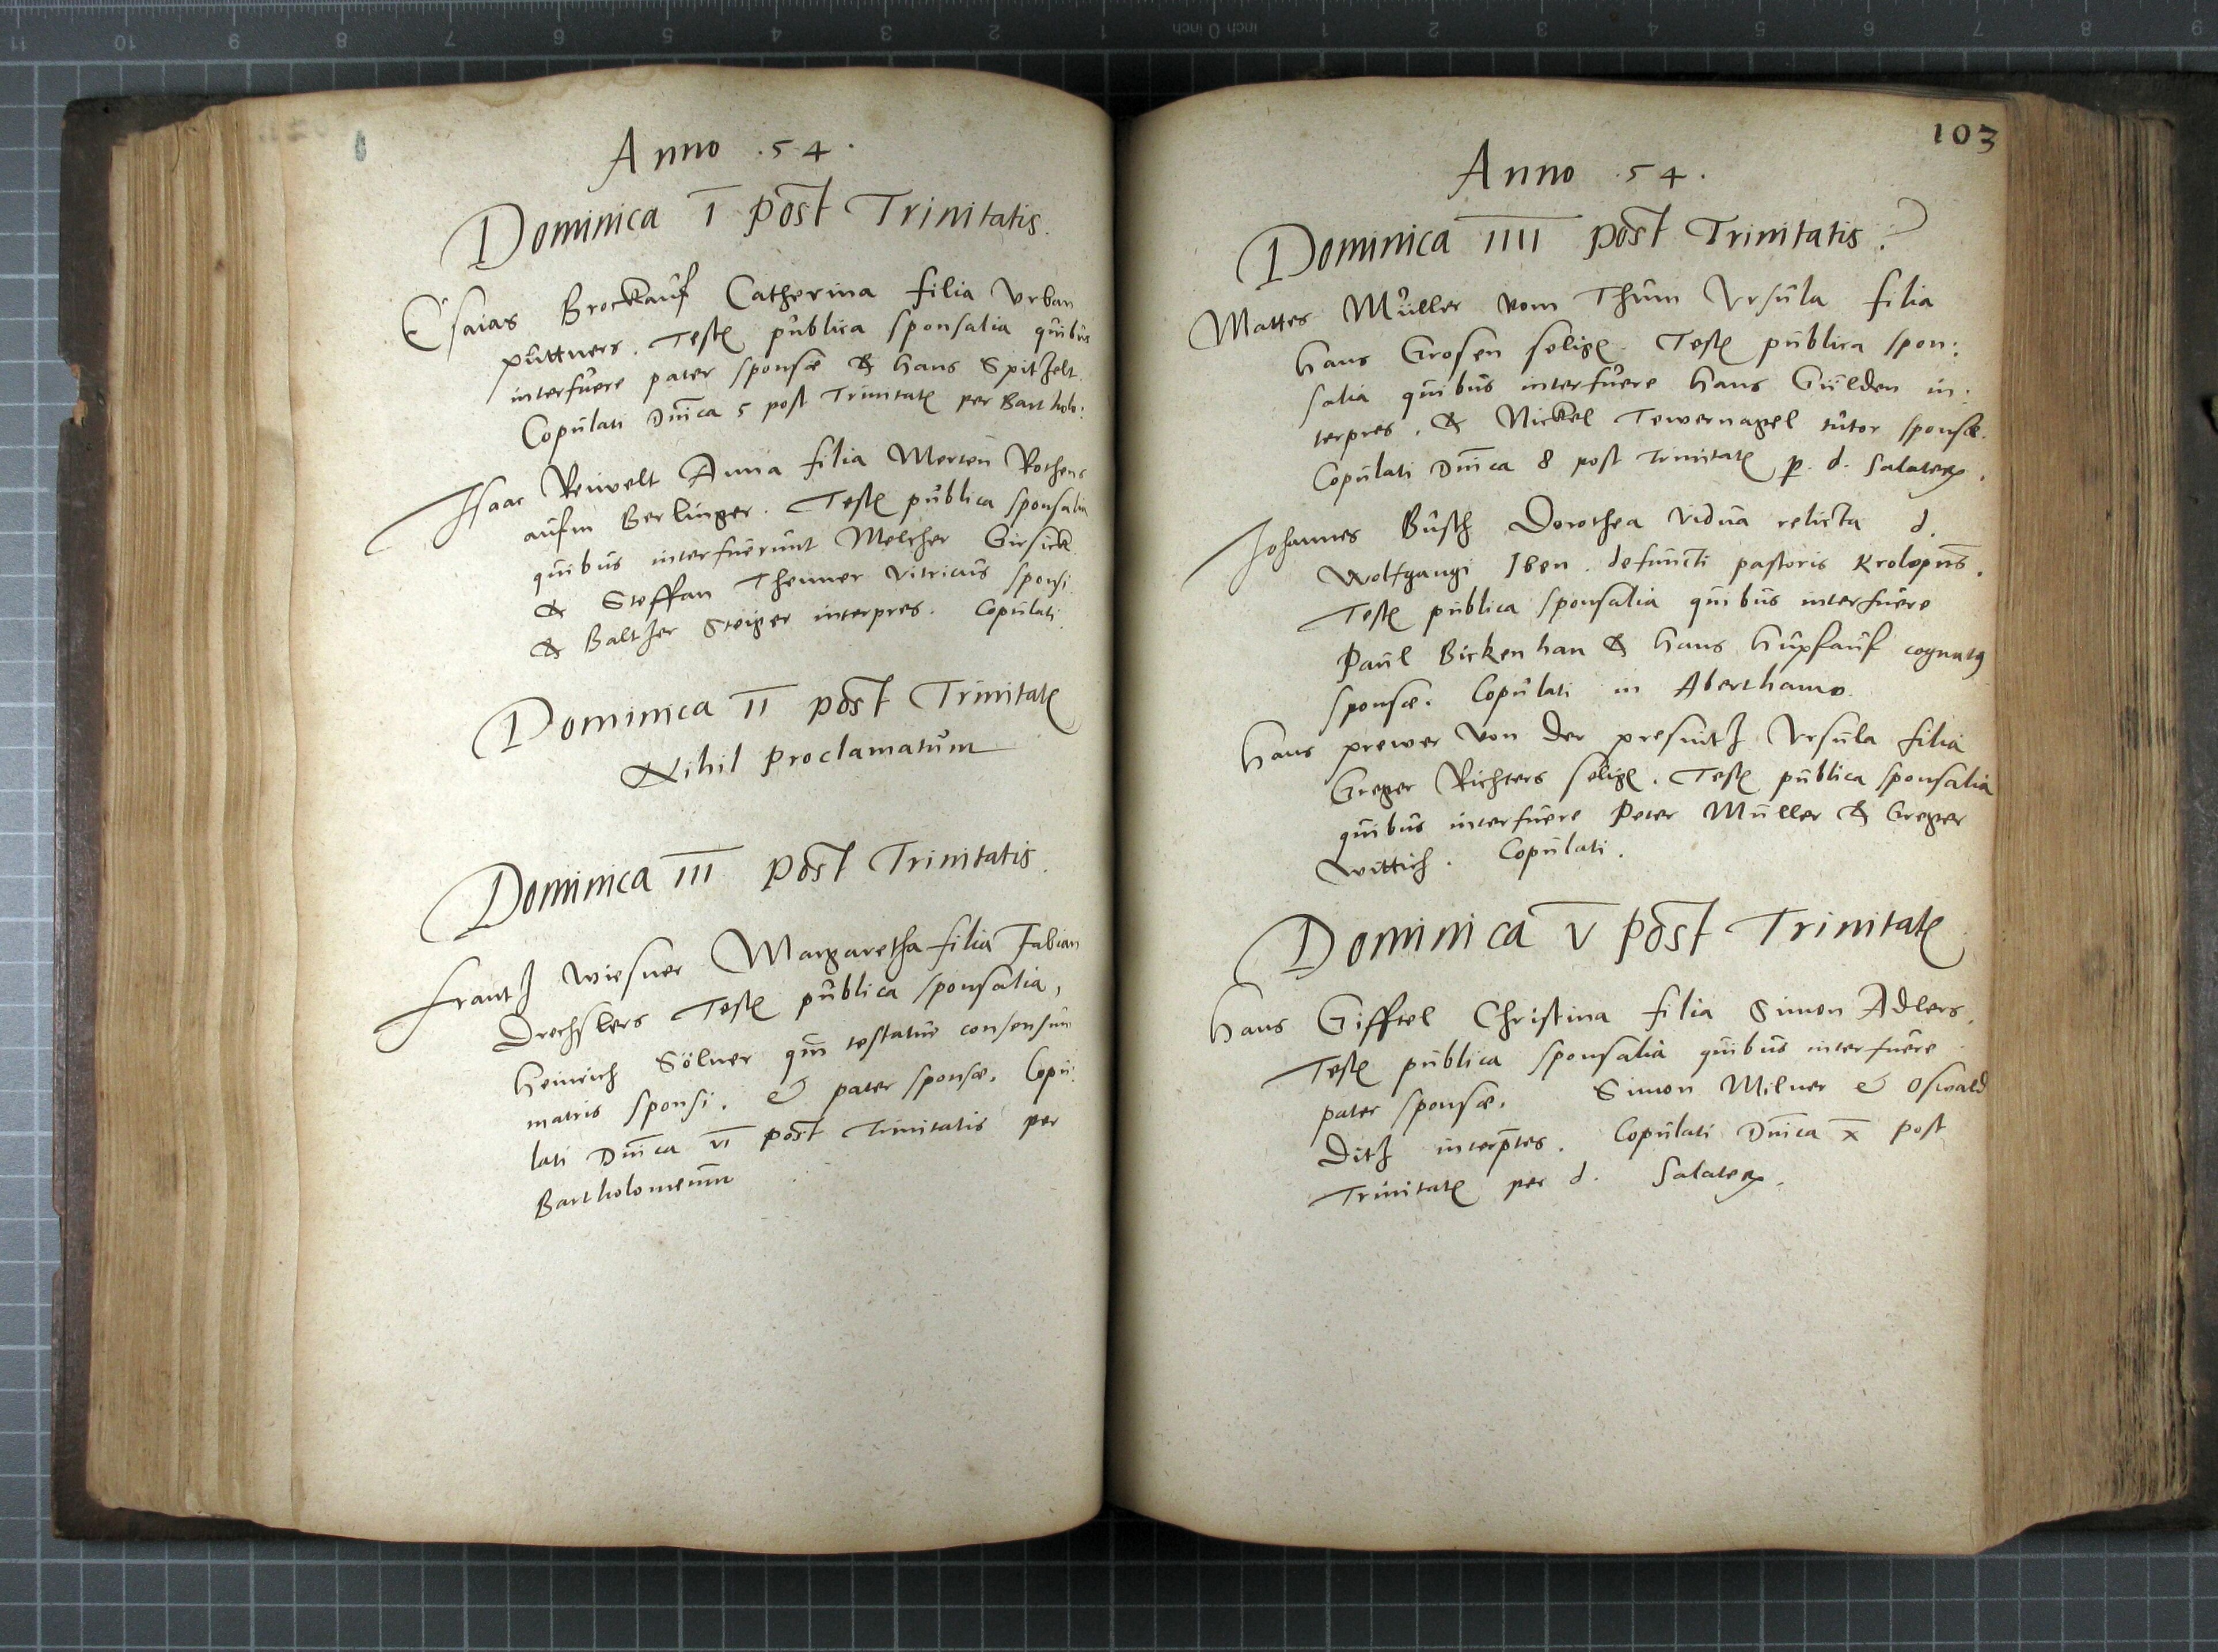 Anno .54.
Dominica I post Trinitatis.
Esaias Brockauf Catherina filia Vrban
püttners. Testes publica sponsalia quibus
interfuere pater sponsæ & hans Spitzelt.
Copulati Dnica 5 post Trinitatis per Bartholo:
Isaac Reiwelt Anna filia Merten Rothens
aufm Berlinger. Testes publica sponsalia
quibus interfuerunt Melcher Girsick
& Steffan Thenner vitricus sponsi
& Baltzer Steiger interpres. Copulati.
Dominica II post Trinitatis
Nihil proclamatum
Dominica III post Trinitatis.
frantz wiesner Margaretha filia Fabian
Drechslers Testes publica sponsalia,
heinrich Sölner qui testatur consensum
matris sponsi. & pater sponsæ. Copu:
lati Dnica VI post Trinitatis per
Bartholomeum
103
Anno .54.
Dominica IIII post Trinitatis.
Mattes Müller vom Thum Vrsula filia
hans Grosen selige. Testes publica spon:
salia quibus interfuere hans Gülden in:
terpres. & Nickel Tewernagel tutor sponsæ.
Copulati Dnica 8 post Trinitatis p. d. Salater.
Johannes Busch Dorothea vidua relicta d.
Wolfgangi Iben. defuncti pastoris Krolopns.
Testes publica sponsalia quibus interfuere
Paul Bickenhan & hans hupfauf cognatq
sponsæ. Copulati in Aberthamo.
hans prewer von der presnitz Vrsula filia
Greger Richters selige. Testes publica sponsalia
quibus interfuere Peter Müller & Greger
wittich. Copulati.
Dominica V post Trinitatis
hans Gifftel Christina filia Simon Adlers.
Testes publica sponsalia quibus interfuere
pater sponsæ. Simon Milner & Oswald
Ditz interptes. Copulati Dnica X post
Trinitatis per d. Salater.